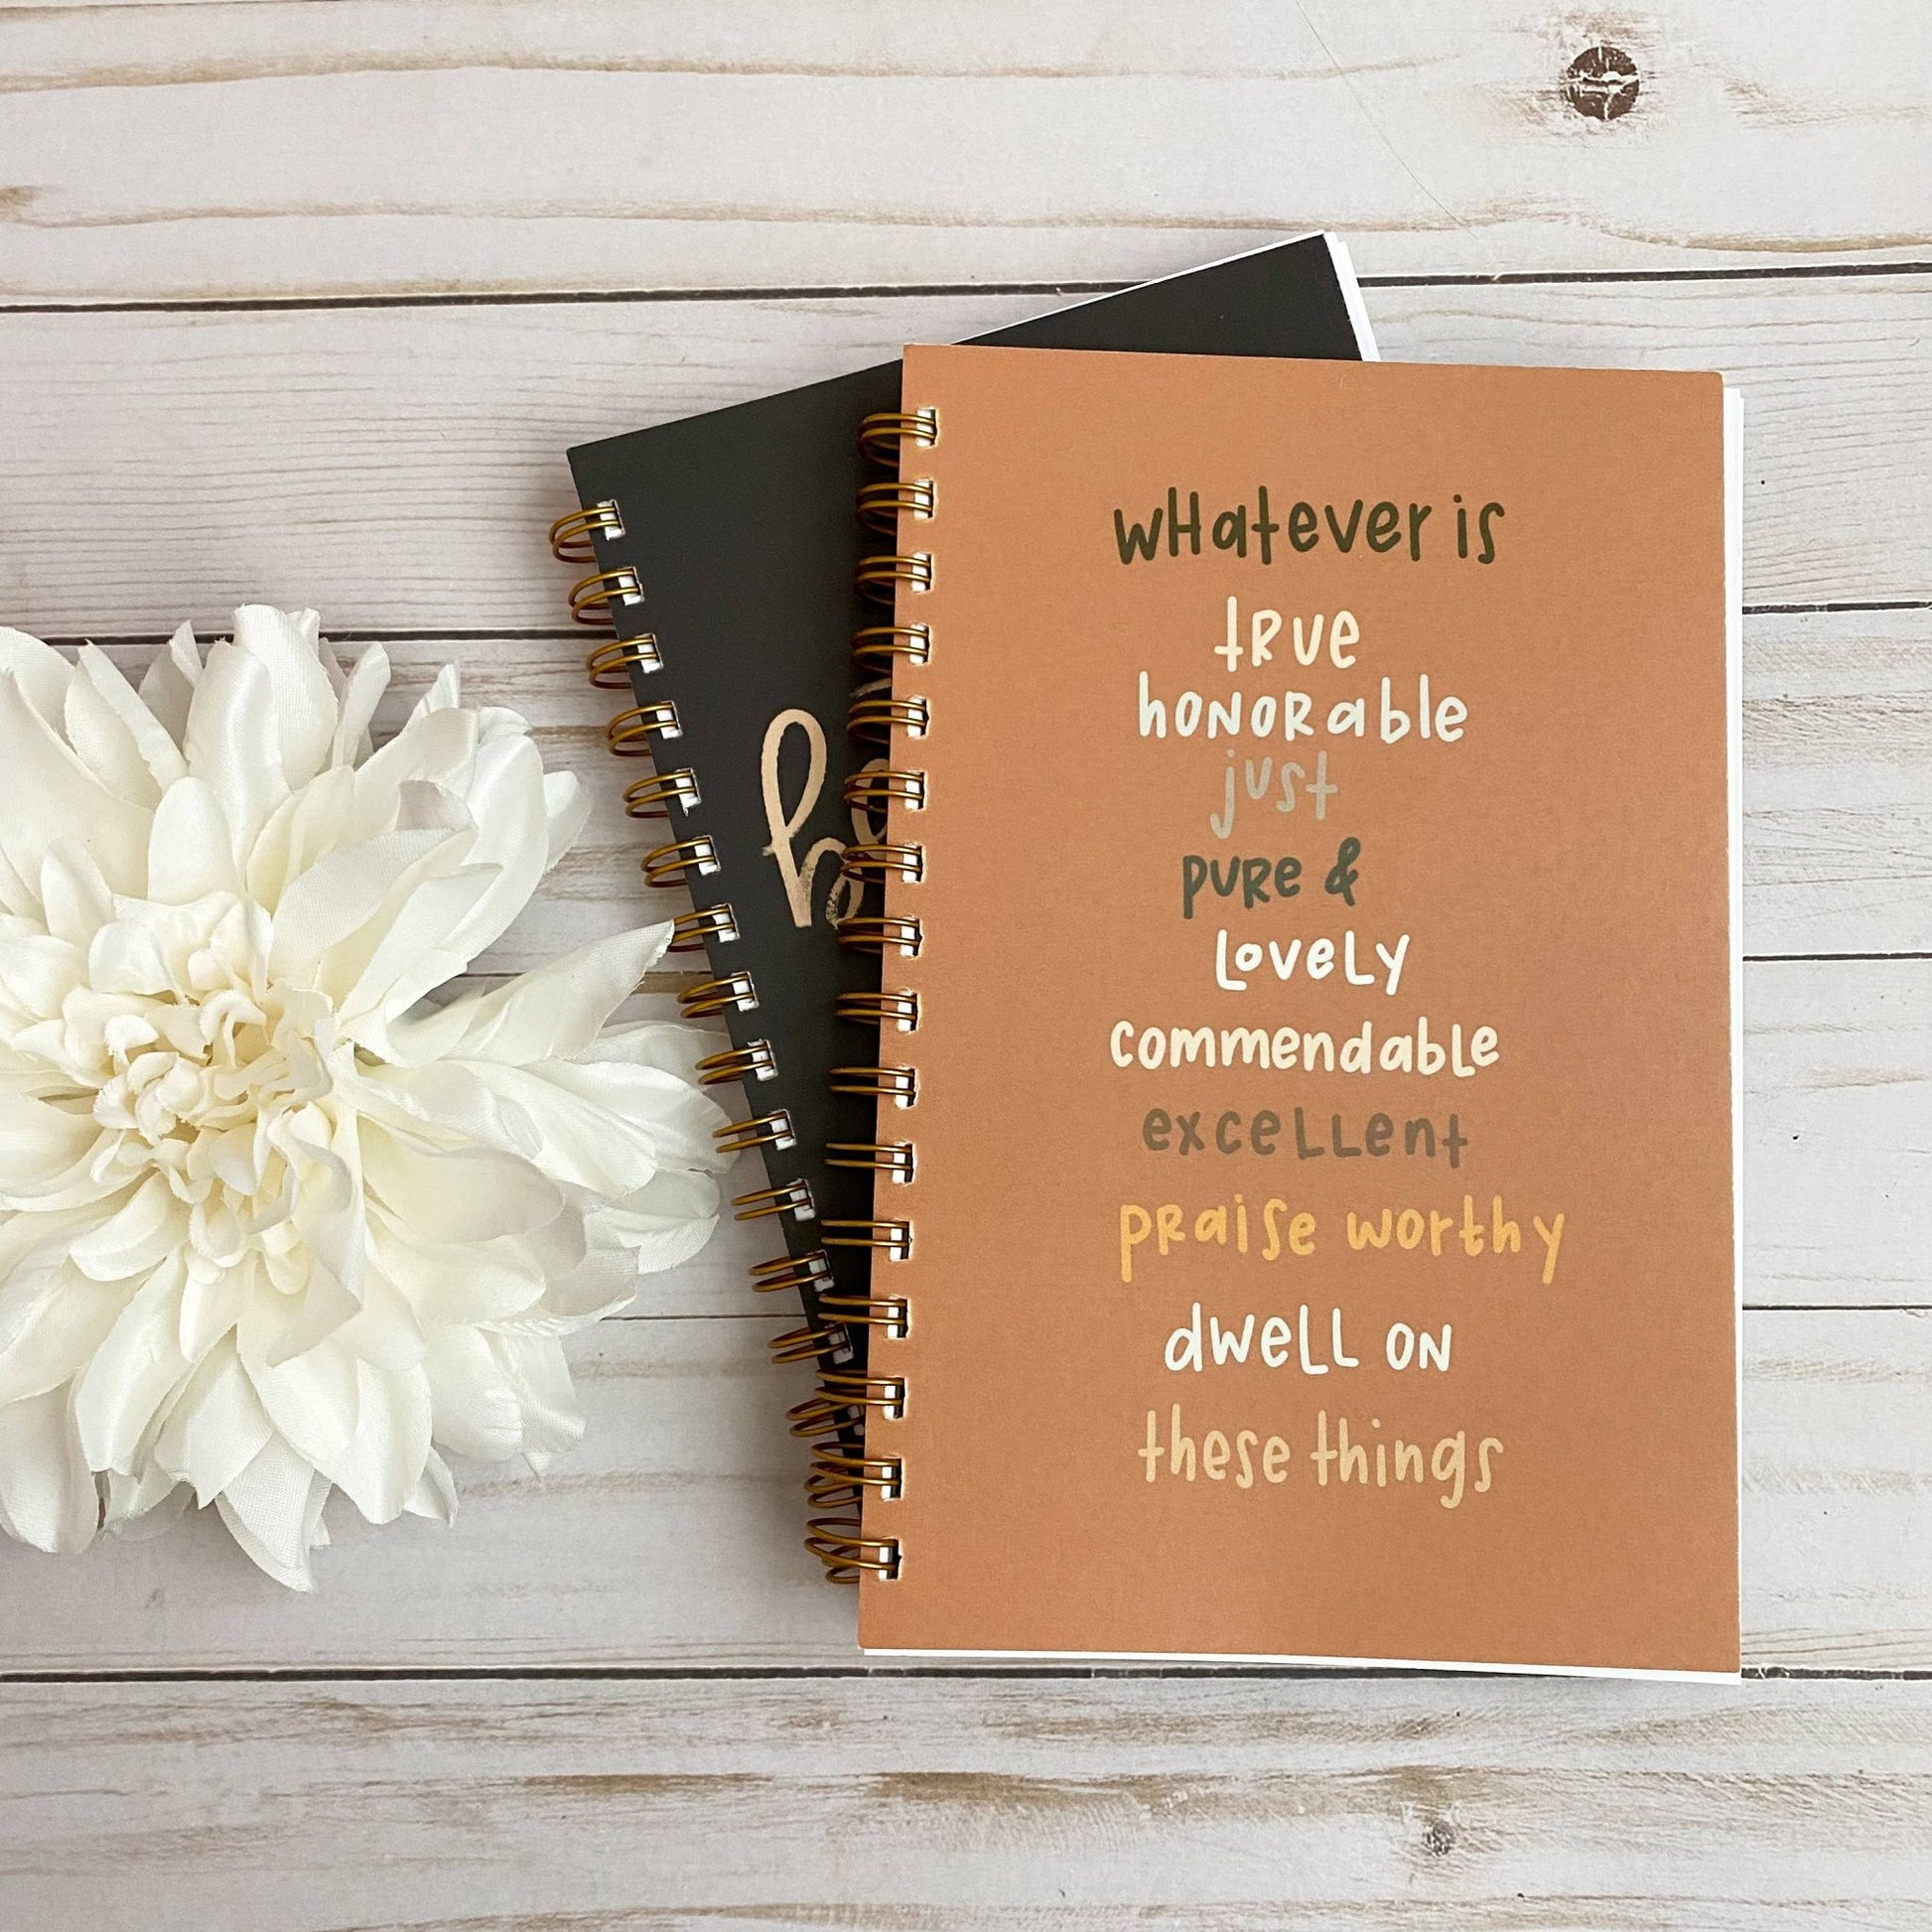 wHatever is
tRue
hoNoRable
just
puRe &
LoveLy
commendable
exceLLent
pRaise worthy
dwell oN
these things